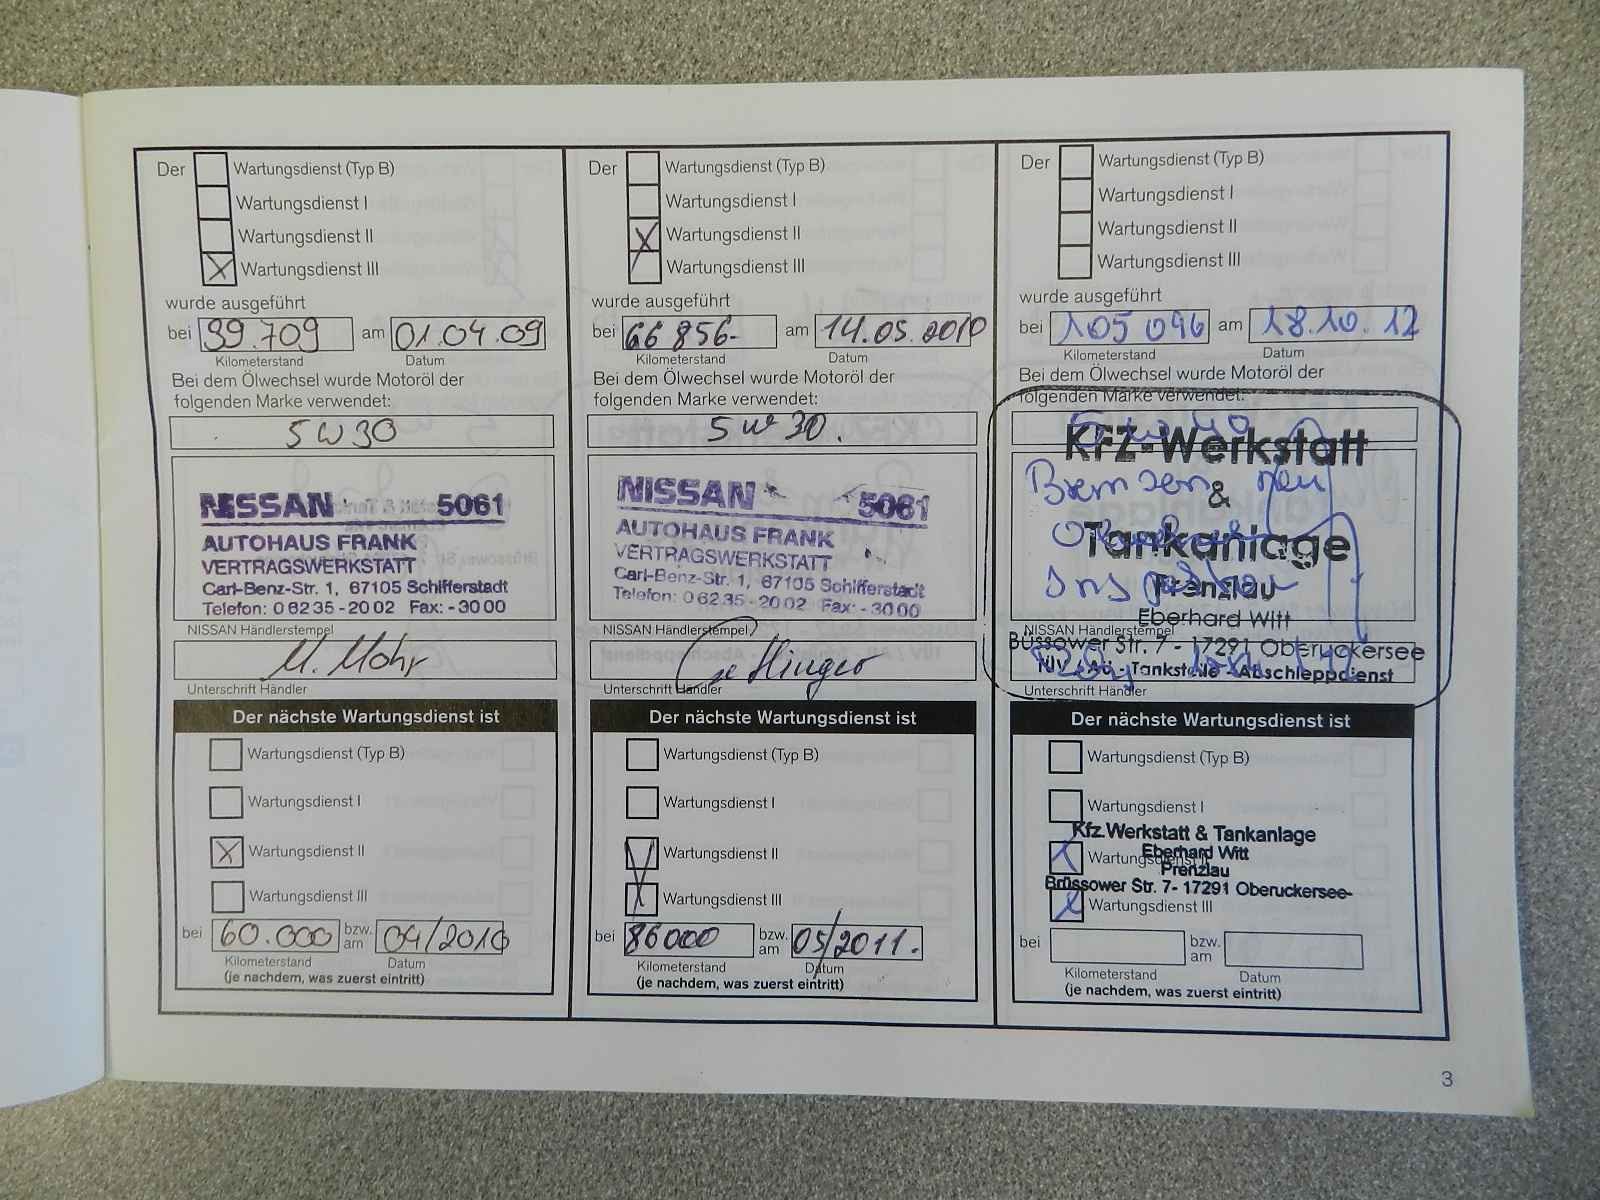 Der Wartungsdienst (Typ B)
Wartungsdienst I
Wartungsdienst II
Wartungsdienst III
wurde ausgeführt
bei 39.709 am 01.04.09
Kilometerstand Datum
Bei dem Ölwechsel wurde Motoröl der
folgenden Marke verwendet:
5W30
NISSAN 5061
AUTOHAUS FRANK
VERTRAGSWERKSTATT
Carl-Benz-Str. 1, 67105 Schifferstadt
Telefon: 0 62 35 - 20 02 Fax: - 30 00
NISSAN Händlerstempel
M. Mohr
Unterschrift Händler
Der nächste Wartungsdienst ist
Wartungsdienst (Typ B)
Wartungsdienst I
Wartungsdienst II
Wartungsdienst III
bei 60.000 bzw. am 04/2010
Kilometerstand Datum
(je nachdem, was zuerst eintritt)
Der Wartungsdienst (Typ B)
Wartungsdienst I
Wartungsdienst II
Wartungsdienst III
wurde ausgeführt
bei 66 856- am 14.05.2010
Kilometerstand Datum
Bei dem Ölwechsel wurde Motoröl der
folgenden Marke verwendet:
5W30.
NISSAN 5061
AUTOHAUS FRANK
VERTRAGSWERKSTATT
Carl-Benz-Str. 1, 67105 Schifferstadt
Telefon: 0 62 35 - 20 02 Fax: - 30 00
NISSAN Händlerstempel
Unterschrift Händler
Der nächste Wartungsdienst ist
Wartungsdienst (Typ B)
Wartungsdienst I
Wartungsdienst II
Wartungsdienst III
bei 86000 bzw. am 05/2011.
Kilometerstand Datum
(je nachdem, was zuerst eintritt)
Der Wartungsdienst (Typ B)
Wartungsdienst I
Wartungsdienst II
Wartungsdienst III
wurde ausgeführt
bei 105 096 am 18.10.12
Kilometerstand Datum
Bei dem Ölwechsel wurde Motoröl der
folgenden Marke verwendet:
KFZ-Werkstatt
Bremsen neu
&
Tankanlage
Prenzlau
Eberhard Witt
NISSAN Händlerstempel
Büssower Str. 7 - 17291 Oberuckersee
TÜV - AU - Tankstelle - Abschleppdienst
Unterschrift Händler
Der nächste Wartungsdienst ist
Wartungsdienst (Typ B)
Wartungsdienst I
Kfz.Werkstatt & Tankanlage
Eberhard Witt
Wartungsdienst II
Prenzlau
Brüssower Str. 7- 17291 Oberuckersee-
Wartungsdienst III
bei bzw. am
Kilometerstand Datum
(je nachdem, was zuerst eintritt)
3